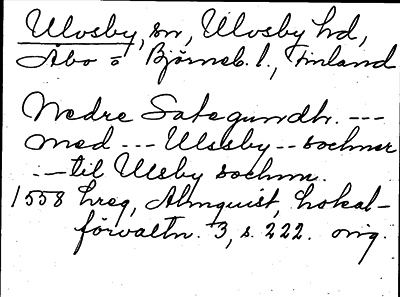 Ulvsby, sn, Ulvsby hd,
Åbo o Björneb. l., Finland
Nedre Satagundh. ---
med --- Ulssby -- sochner
--- til Ulsby sochnn.
1558 hreg, Almquist, Lokal-
förvaltn. 3, s. 222. orig.